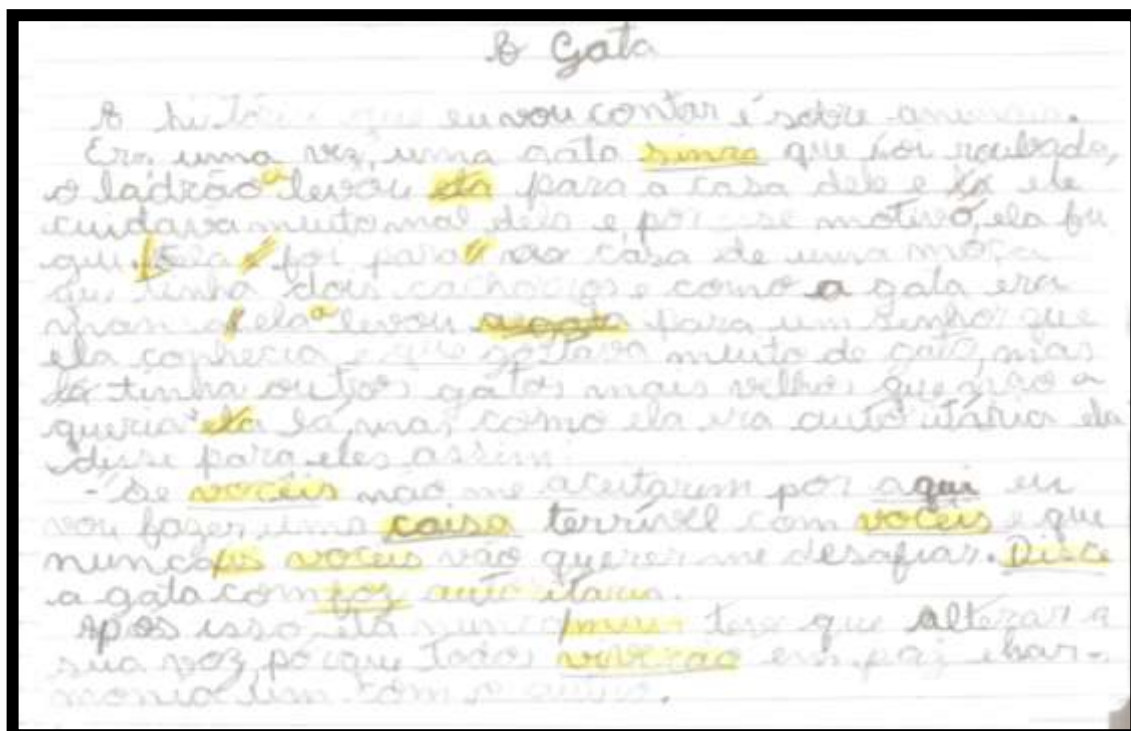 A Gata
A história que eu vou contar é sobre animais.
Era uma vez, uma gata sinza que foi roubada,
o ladrão a levou ela para a casa dele e ele
cuidava muito mal dela e por esse motivo, ela fu
giu. Ela foi para na casa de uma moça
que tinha dois cachorros e como a gata era
ela a levou a gata para um senhor que
ela conhecia e que gostava muito de gato, mas
lá tinha outros gatos mais velhos que não a
queria ela lá, mas, como ela era autoritária ela
disse para eles assim
- Se vocêis não me aceitarem por aqui eu
vou fazer uma coisa terrível com vocêis e que
nunca vocêis vão querer me desafiar. Disce
a gata com foz autoritaria.
Após isso ela nunca mais teve que alterar a
sua voz porque todos viverão em paz e har-
monia um com o outro.